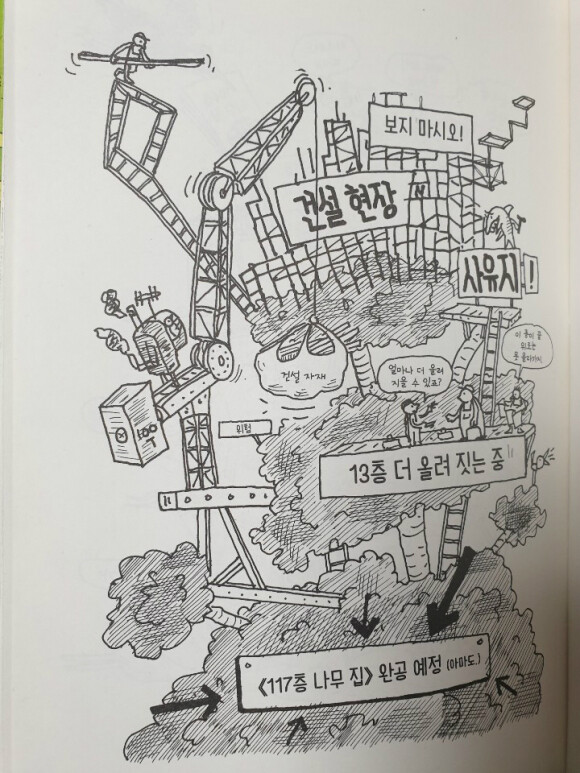 보지 마시오!
건설 현장
사유지!
건설 자재
얼마나 더 올려
지을 수 있죠?
위험
13층 더 올려 짓는 중!!
《117층 나무 집》 완공 예정 (아마도.)